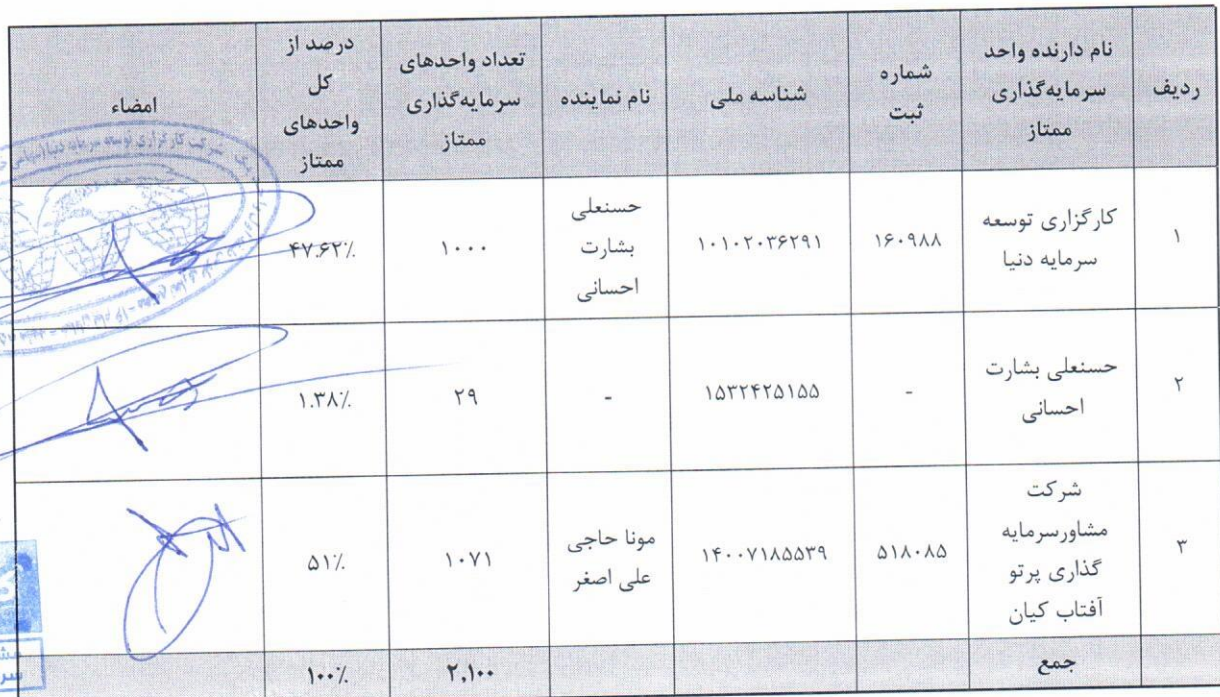 ردیف
نام دارنده واحد
سرمایه‌گذاری
ممتاز
شماره
ثبت
شناسه ملی
نام نماینده
تعداد واحدهای
سرمایه‌گذاری
ممتاز
درصد از
کل
واحدهای
ممتاز
امضاء
۱
کارگزاری توسعه
سرمایه دنیا
۱۶۰۹۸۸
۱۰۱۰۲۰۳۶۲۹۱
حسنعلی
بشارت
احسانی
۱۰۰۰
۴۷.۶۲%
شرکت کارگزاری توسعه سرمایه دنیا
۲
حسنعلی بشارت
احسانی
-
۱۵۳۲۴۲۵۱۵۵
-
۲۹
۱.۳۸%
۳
شرکت
مشاورسرمایه
گذاری پرتو
آفتاب کیان
۵۱۸۰۸۵
۱۴۰۰۷۱۸۵۵۳۹
مونا حاجی
علی اصغر
۱۰۷۱
۵۱%
جمع
۲,۱۰۰
۱۰۰%